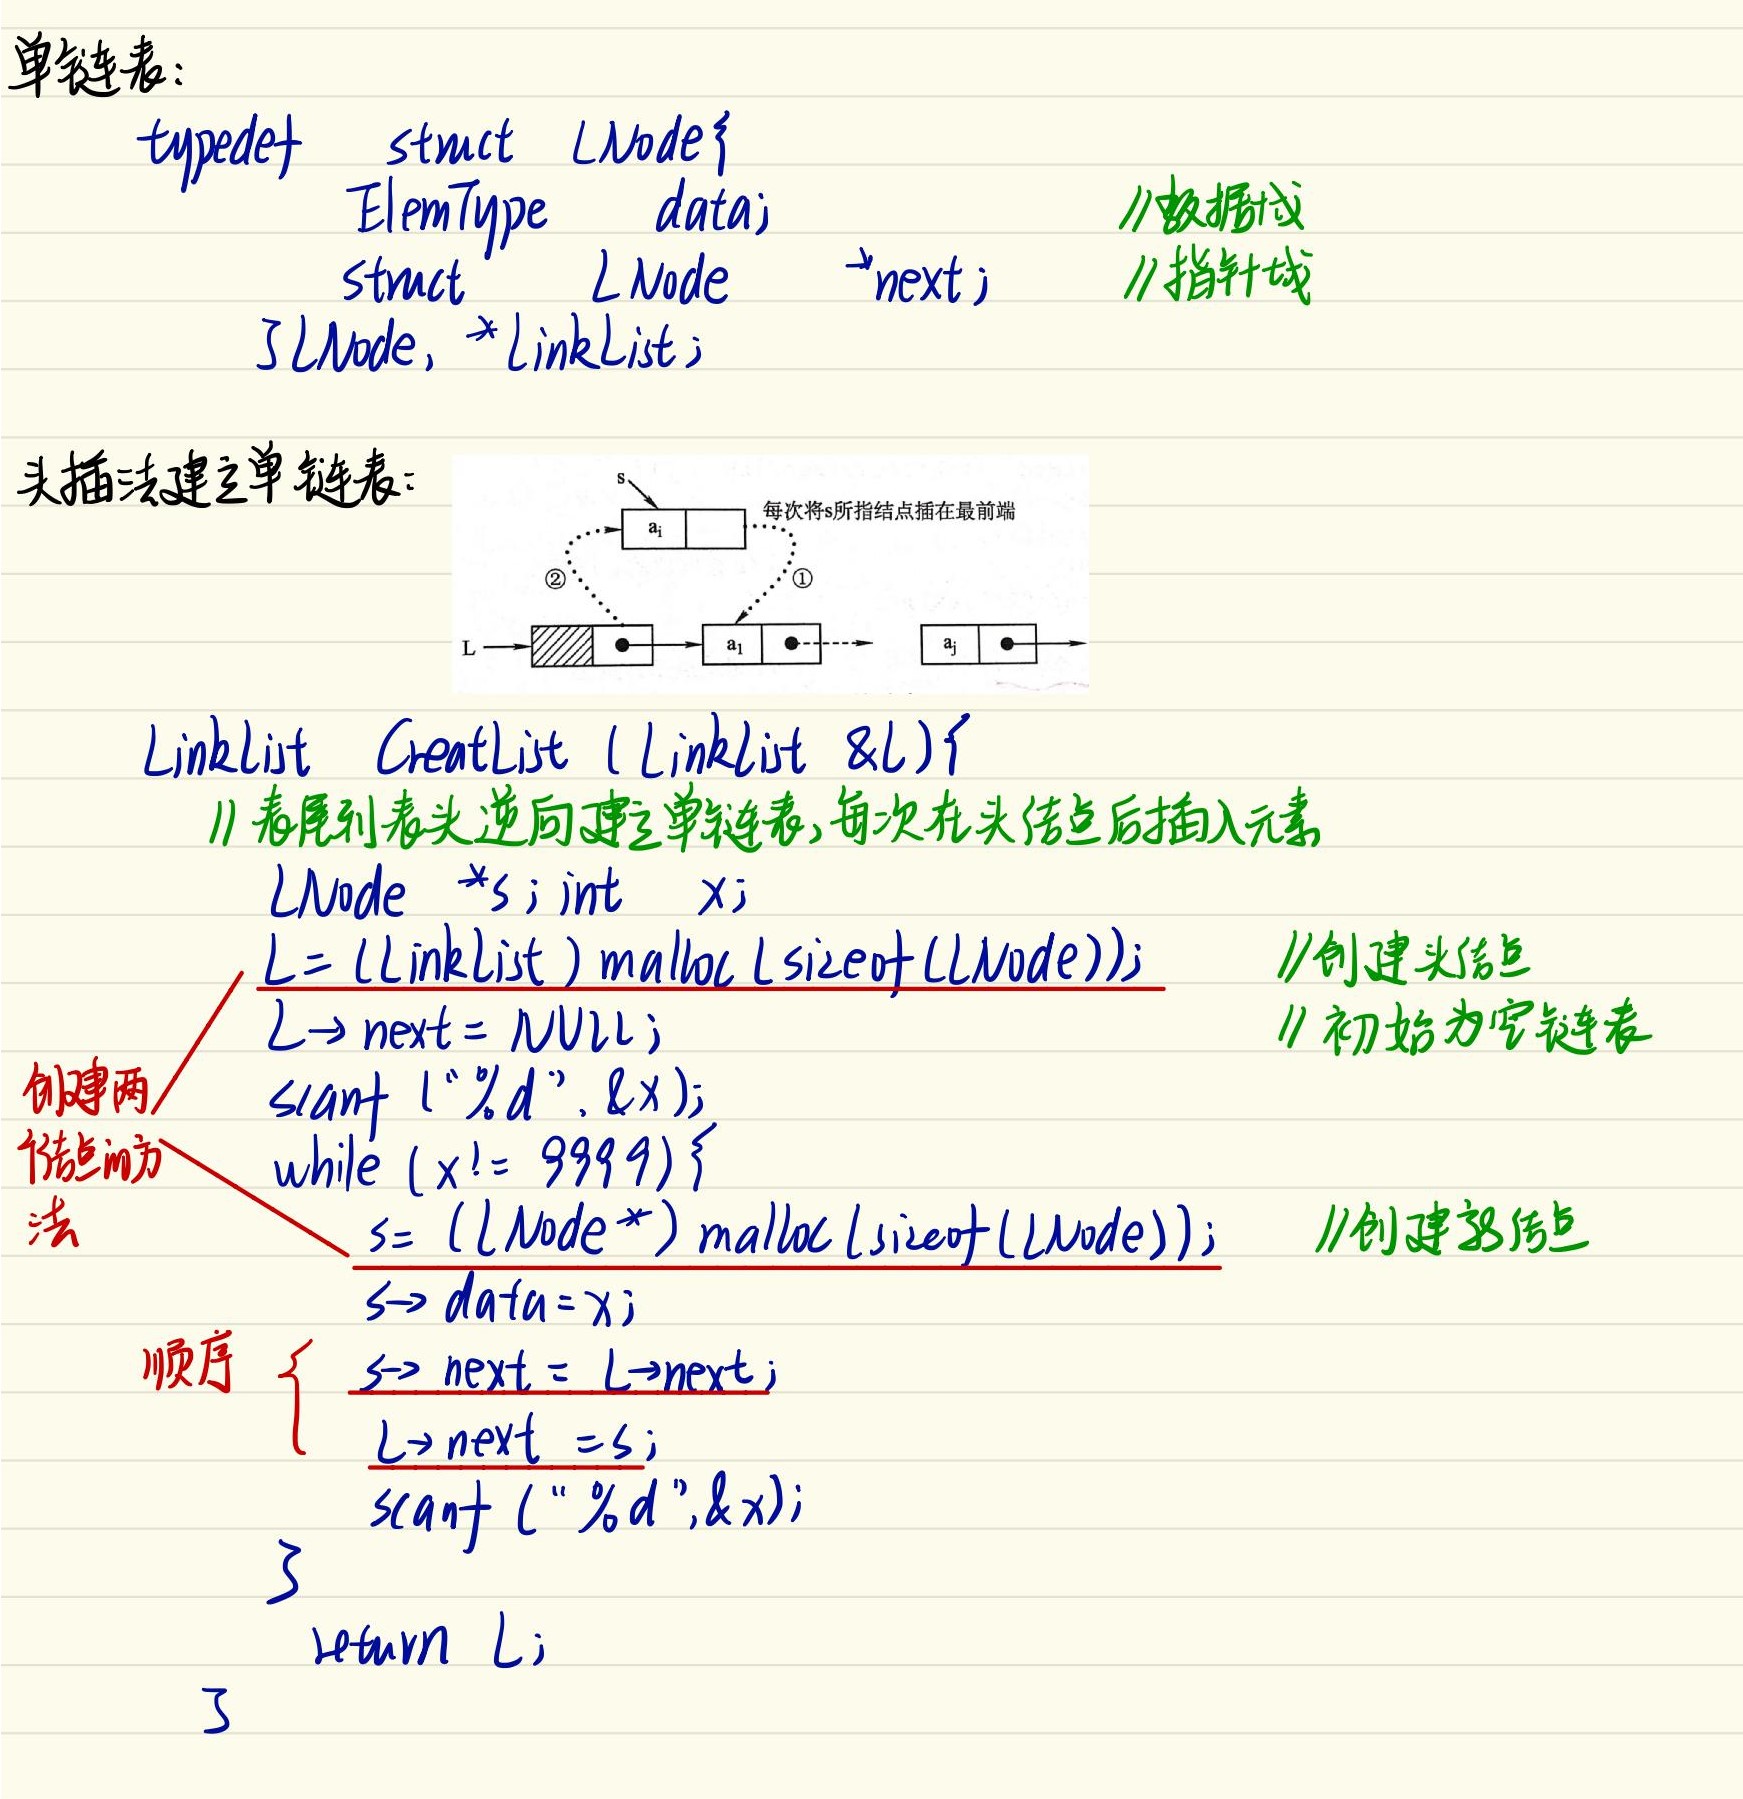 单链表：
typedef struct LNode{
ElemType data; //数据域
struct LNode *next; //指针域
}LNode, *LinkList;
头插法建立单链表：
s
每次将s所指结点插在最前端
ai
② ①
L a1 aj
LinkList CreatList (LinkList &L){
//表尾到表头逆向建立单链表,每次在头结点后插入元素
LNode *s; int x;
L = (LinkList) malloc(sizeof(LNode)); //创建头结点
L→next = NULL; //初始为空链表
创建两
scanf ("%d", &x);
个结点的方
while (x != 9999){
法
s = (LNode*) malloc(sizeof(LNode)); //创建新结点
s→data=x;
顺序 { s→next = L→next;
L→next = s;
scanf ("%d",&x);
}
return L;
}